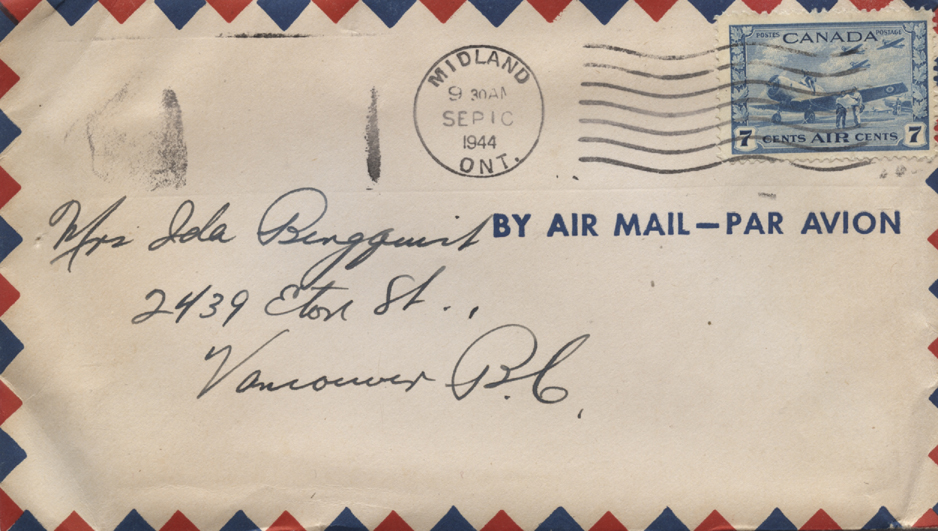 MIDLAND
9 30AM
SEP 10
1944
ONT.
POSTES CANADA POSTAGE
7 CENTS AIR CENTS 7
BY AIR MAIL—PAR AVION
Mrs Ida Bergquist
2439 Eton St.,
Vancouver B.C.